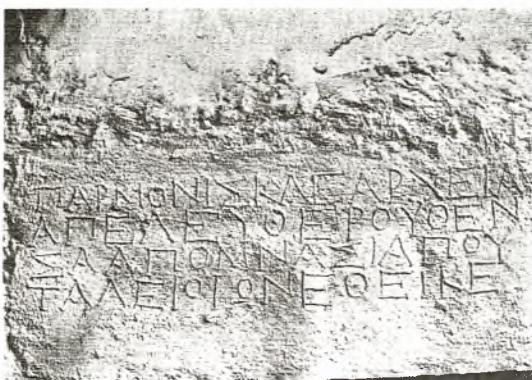 ΠΑΡΜΟΝΙΣΚΛΕΑΡΧΕΙΑ
ΑΠΕΛΕΥΘΕΙΡΟΥΘΕΝ
ΣΑΑΠΟΜΝΑΣΙΔΑΠΟΥ
ΤΑΛΕΙΟΙΟΝΕΘΕΙΚΕ